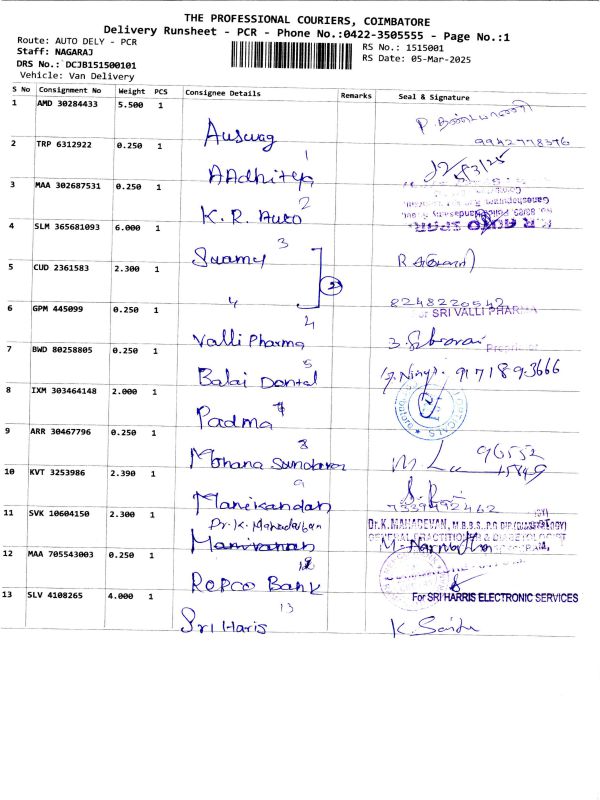 THE PROFESSIONAL COURIERS, COIMBATORE
Delivery Runsheet - PCR - Phone No.:0422-3505555 - Page No.:1
Route: AUTO DELY - PCR
RS No.: 1515001
Staff: NAGARAJ
RS Date: 05-Mar-2025
DRS No.: DCJB151500101
Vehicle: Van Delivery
S No Consignment No Weight PCS Consignee Details Remarks Seal & Signature
1 AMD 30284433 5.500 1
Auswag
9942778376
2 TRP 6312922 0.250 1
1
AAdhitep
5/3/25
3 MAA 302687531 0.250 1
2
K.R. Auto
4 SLM 365681093 6.000 1
3
Swamy
R
5 CUD 2361583 2.300 1
2
"
8248220542
6 GPM 445099 0.250 1
4
For SRI VALLI PHARMA
Valli Pharma
7 BWD 80258805 0.250 1
5
Balai Dental
9171893666
8 IXM 303464148 2.000 1
Padma
9 ARR 30467796 0.250 1
8
Mohana Sundaram
96552
15849
10 KVT 3253986 2.390 1
9
Manikandan
7539992462
11 SVK 10604150 2.300 1
Dr. K. Mahadevan
Dr.K.MAHADEVAN, M.B.B.S.,P.G DIP.(DIABETOLOGY)
GENERAL PRACTITIONER & DIABETOLOGIST
Manivanan
12 MAA 705543003 0.250 1
12
REPCO BANK
13 SLV 4108265 4.000 1
For SRI HARRIS ELECTRONIC SERVICES
13
Sri Haris